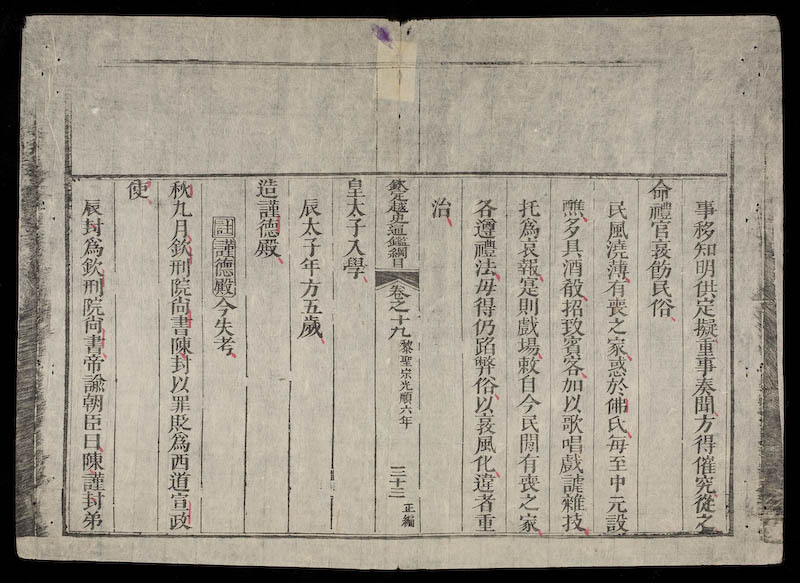 事移知明供定擬重事奏聞方得催究從之
命禮官哀飭民俗
民風澆薄有喪之家惑於佛氏每至中元設
醮多具酒殽招致賓客加以歌唱戲謔雜技
托爲哀報寔則戲場敕自今民間有喪之家
各遵禮法毋得仍蹈弊俗以敦風化違者重
治
欽定越史通鑑綱目 卷之十九 黎聖宗光順六年 三十三 正編
皇太子入學
辰太子年方五歲
造謹德殿
註謹德殿今失考
秋九月欽刑院尙書陳封以罪貶爲西道宣政
使
辰封爲欽刑院尙書帝諭朝臣曰陳謹封弟